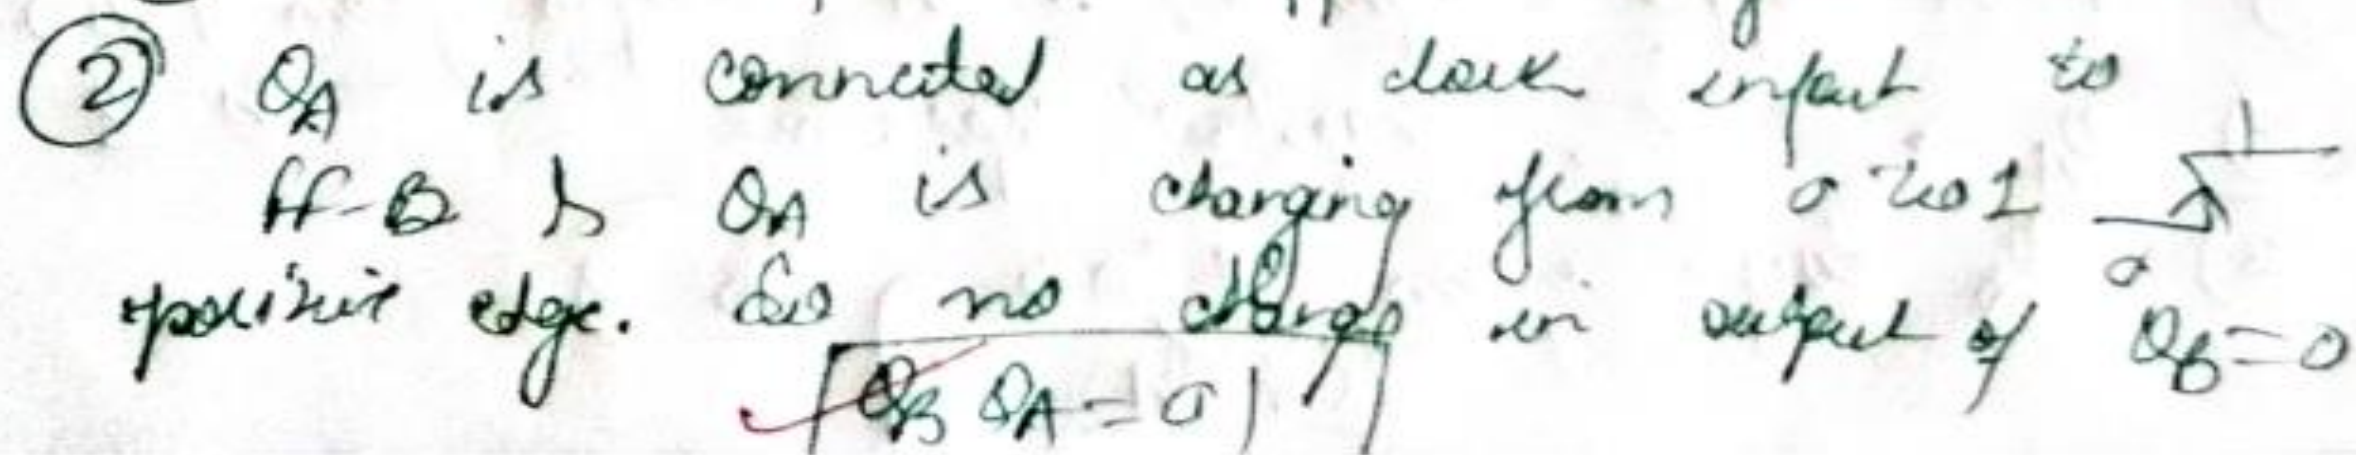 ② QA is connected as clock input to
FF-B & QA is changing from 0 to 1 1
0
positive edge. So no change in output of QB=0
QB QA = 01